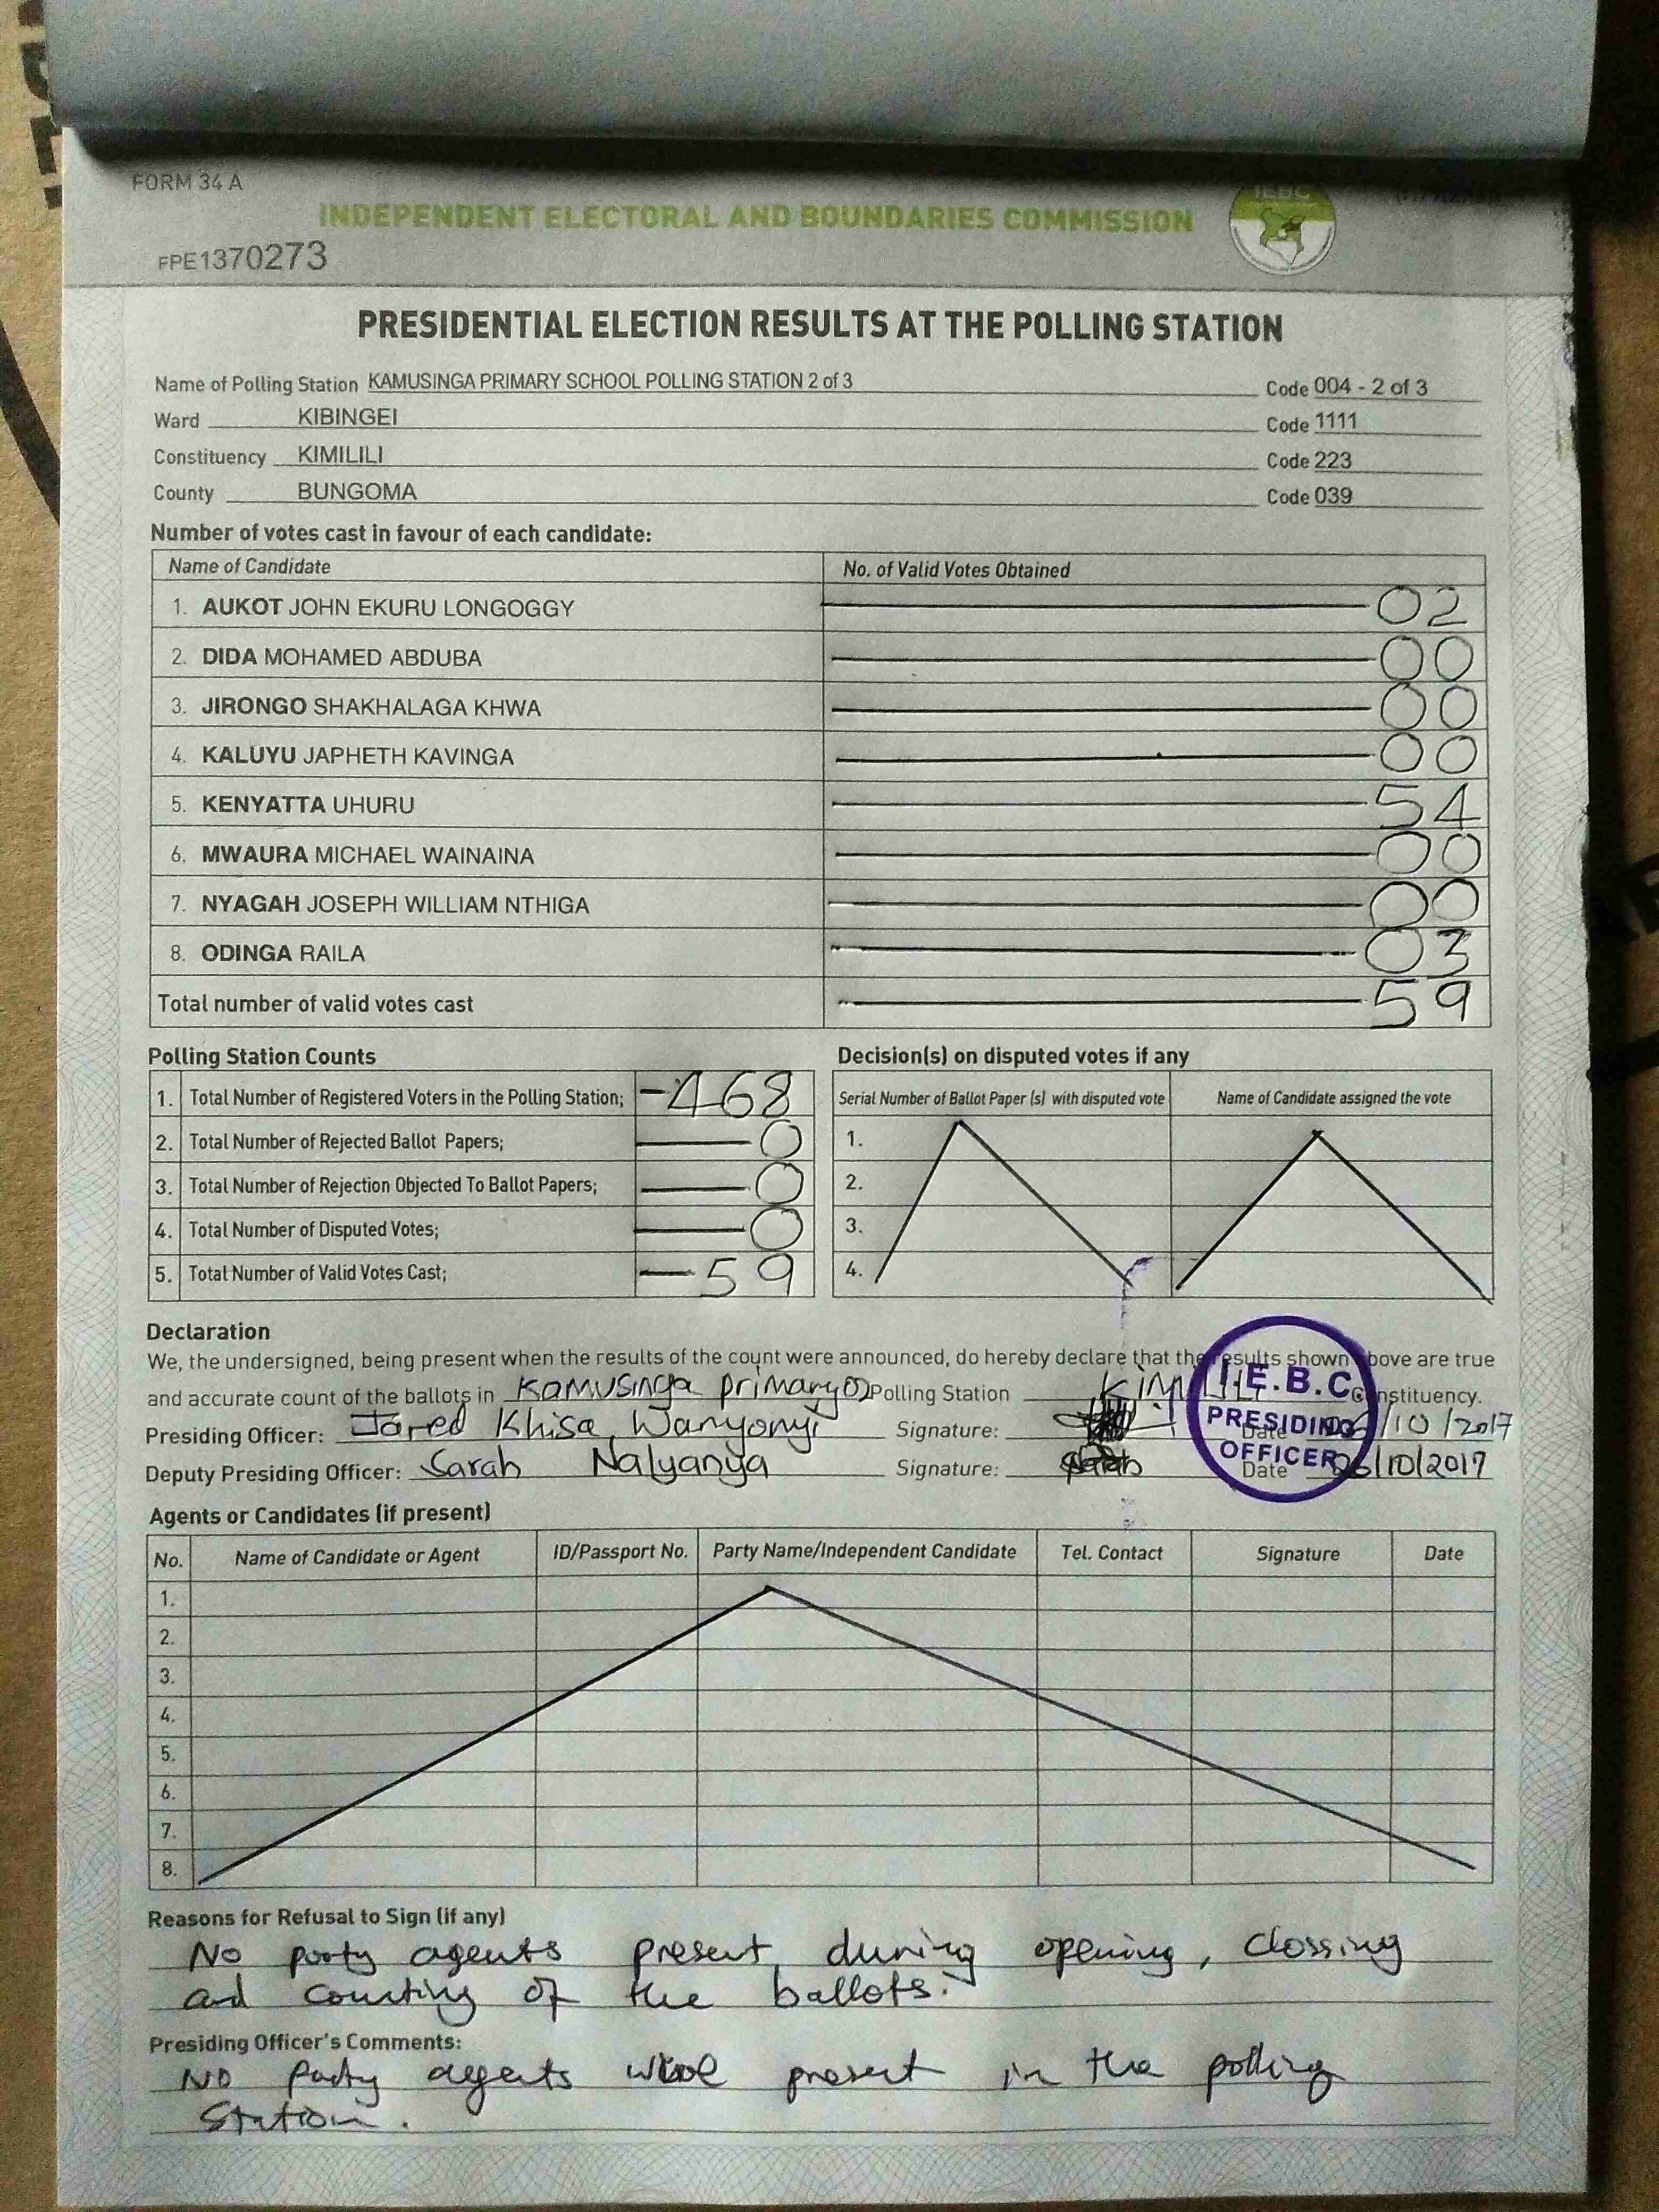 FORM 34 A
IEBC
INDEPENDENT ELECTORAL AND BOUNDARIES COMMISSION
FPE1370273
PRESIDENTIAL ELECTION RESULTS AT THE POLLING STATION
Name of Polling Station KAMUSINGA PRIMARY SCHOOL POLLING STATION 2 of 3 Code 004 - 2 of 3
Ward KIBINGEI Code 1111
Constituency KIMILILI Code 223
County BUNGOMA Code 039
Number of votes cast in favour of each candidate:
Name of Candidate No. of Valid Votes Obtained
1. AUKOT JOHN EKURU LONGOGGY 02
2. DIDA MOHAMED ABDUBA 00
3. JIRONGO SHAKHALAGA KHWA 00
4. KALUYU JAPHETH KAVINGA 00
5. KENYATTA UHURU 54
6. MWAURA MICHAEL WAINAINA 00
7. NYAGAH JOSEPH WILLIAM NTHIGA 00
8. ODINGA RAILA 03
Total number of valid votes cast 59
Polling Station Counts
1. Total Number of Registered Voters in the Polling Station; 468
2. Total Number of Rejected Ballot Papers; 0
3. Total Number of Rejection Objected To Ballot Papers; 0
4. Total Number of Disputed Votes; 0
5. Total Number of Valid Votes Cast; 59
Decision(s) on disputed votes if any
Serial Number of Ballot Paper (s) with disputed vote Name of Candidate assigned the vote
1.
2.
3.
4.
Declaration
We, the undersigned, being present when the results of the count were announced, do hereby declare that the results shown above are true
and accurate count of the ballots in Kamusinga primary (2) Polling Station KIMILILI Constituency.
Presiding Officer: Jared Khisa Wanyonyi Signature: Date 26/10/2017
Deputy Presiding Officer: Sarah Nalyanya Signature: Date 26/10/2017
I.E.B.C
PRESIDING
OFFICER
Agents or Candidates (if present)
No. Name of Candidate or Agent ID/Passport No. Party Name/Independent Candidate Tel. Contact Signature Date
1.
2.
3.
4.
5.
6.
7.
8.
Reasons for Refusal to Sign (if any)
No party agents present during opening, clossing
and counting of the ballots.
Presiding Officer's Comments:
No party agents were present in the polling
station.